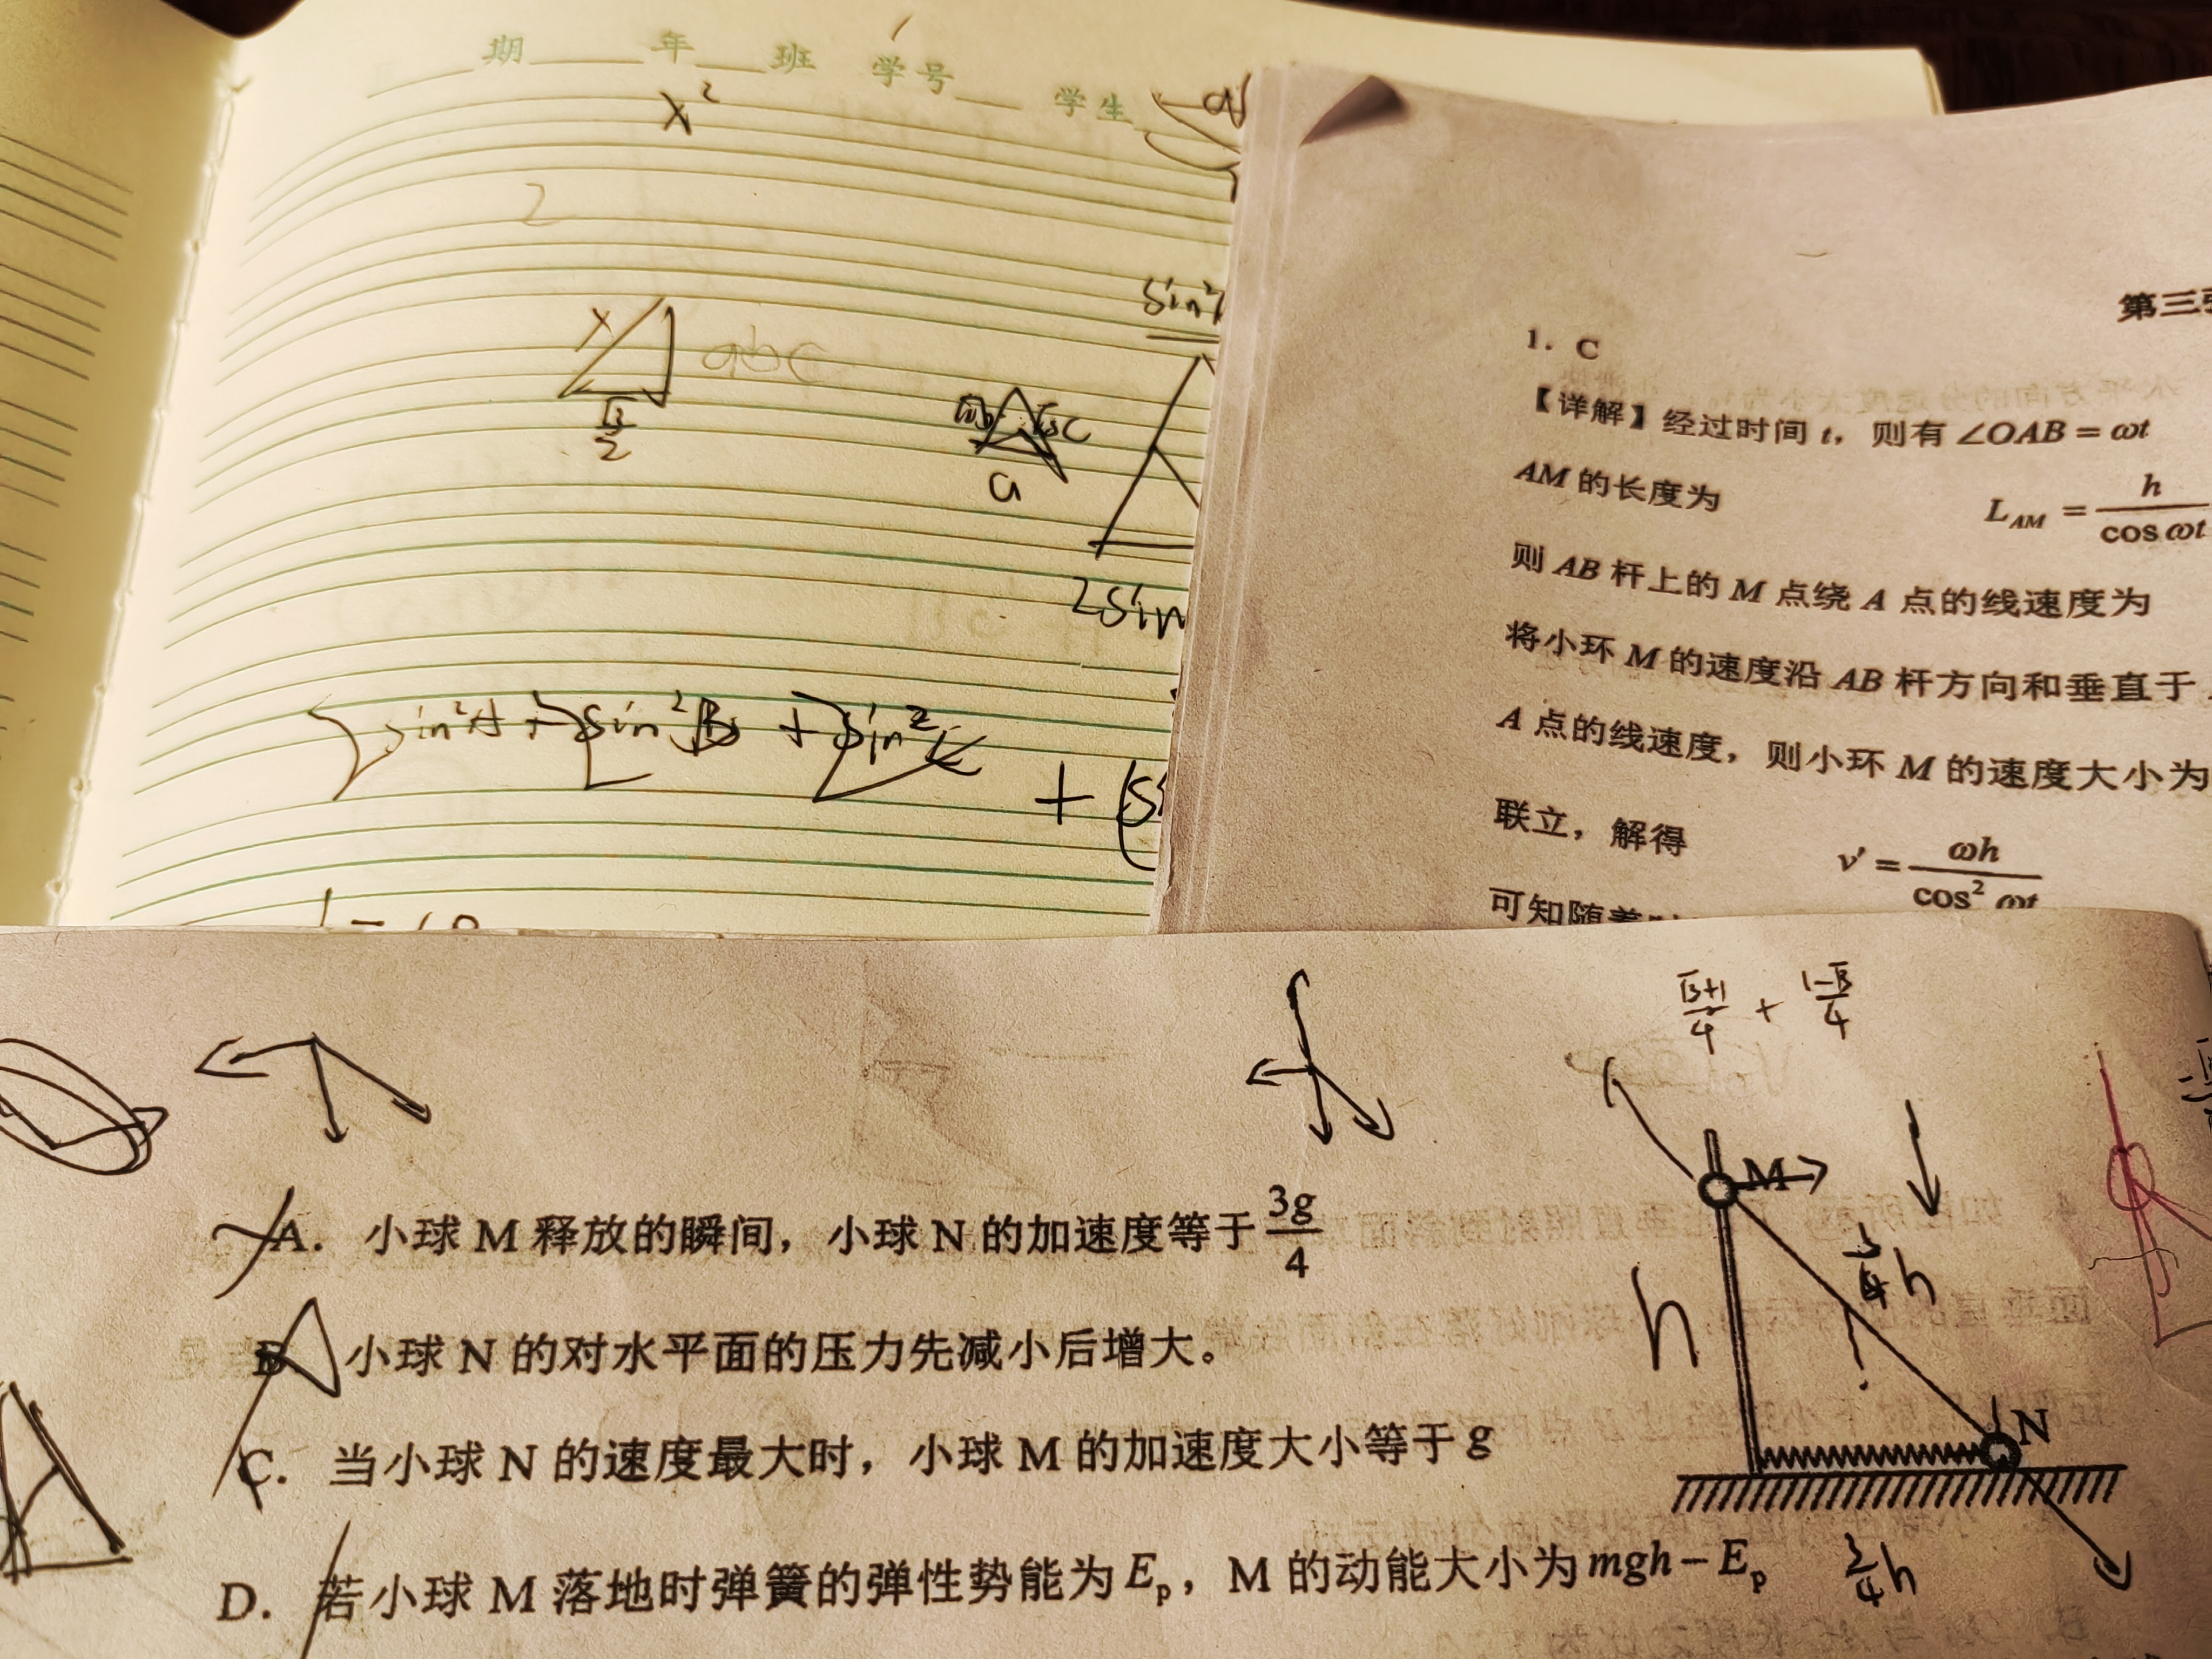 期 年 班 学号 学生
x²
2
x
abc
√3/2
a
sin²
2sin
sin²A + sin²B + sin²
+ (s
第三
1. C
【详解】经过时间 t，则有 ∠OAB = ωt
AM 的长度为 L_AM = h/cos ωt
则 AB 杆上的 M 点绕 A 点的线速度为
将小环 M 的速度沿 AB 杆方向和垂直于
A 点的线速度，则小环 M 的速度大小为
联立，解得 v' = ωh/cos² ωt
可知随着
(√3+1)/4 + (1-√3)/4
A. 小球 M 释放的瞬间，小球 N 的加速度等于 3g/4
B 小球 N 的对水平面的压力先减小后增大。
C. 当小球 N 的速度最大时，小球 M 的加速度大小等于 g
D. 若小球 M 落地时弹簧的弹性势能为 E_p，M 的动能大小为 mgh − E_p
M
h
h
N
h